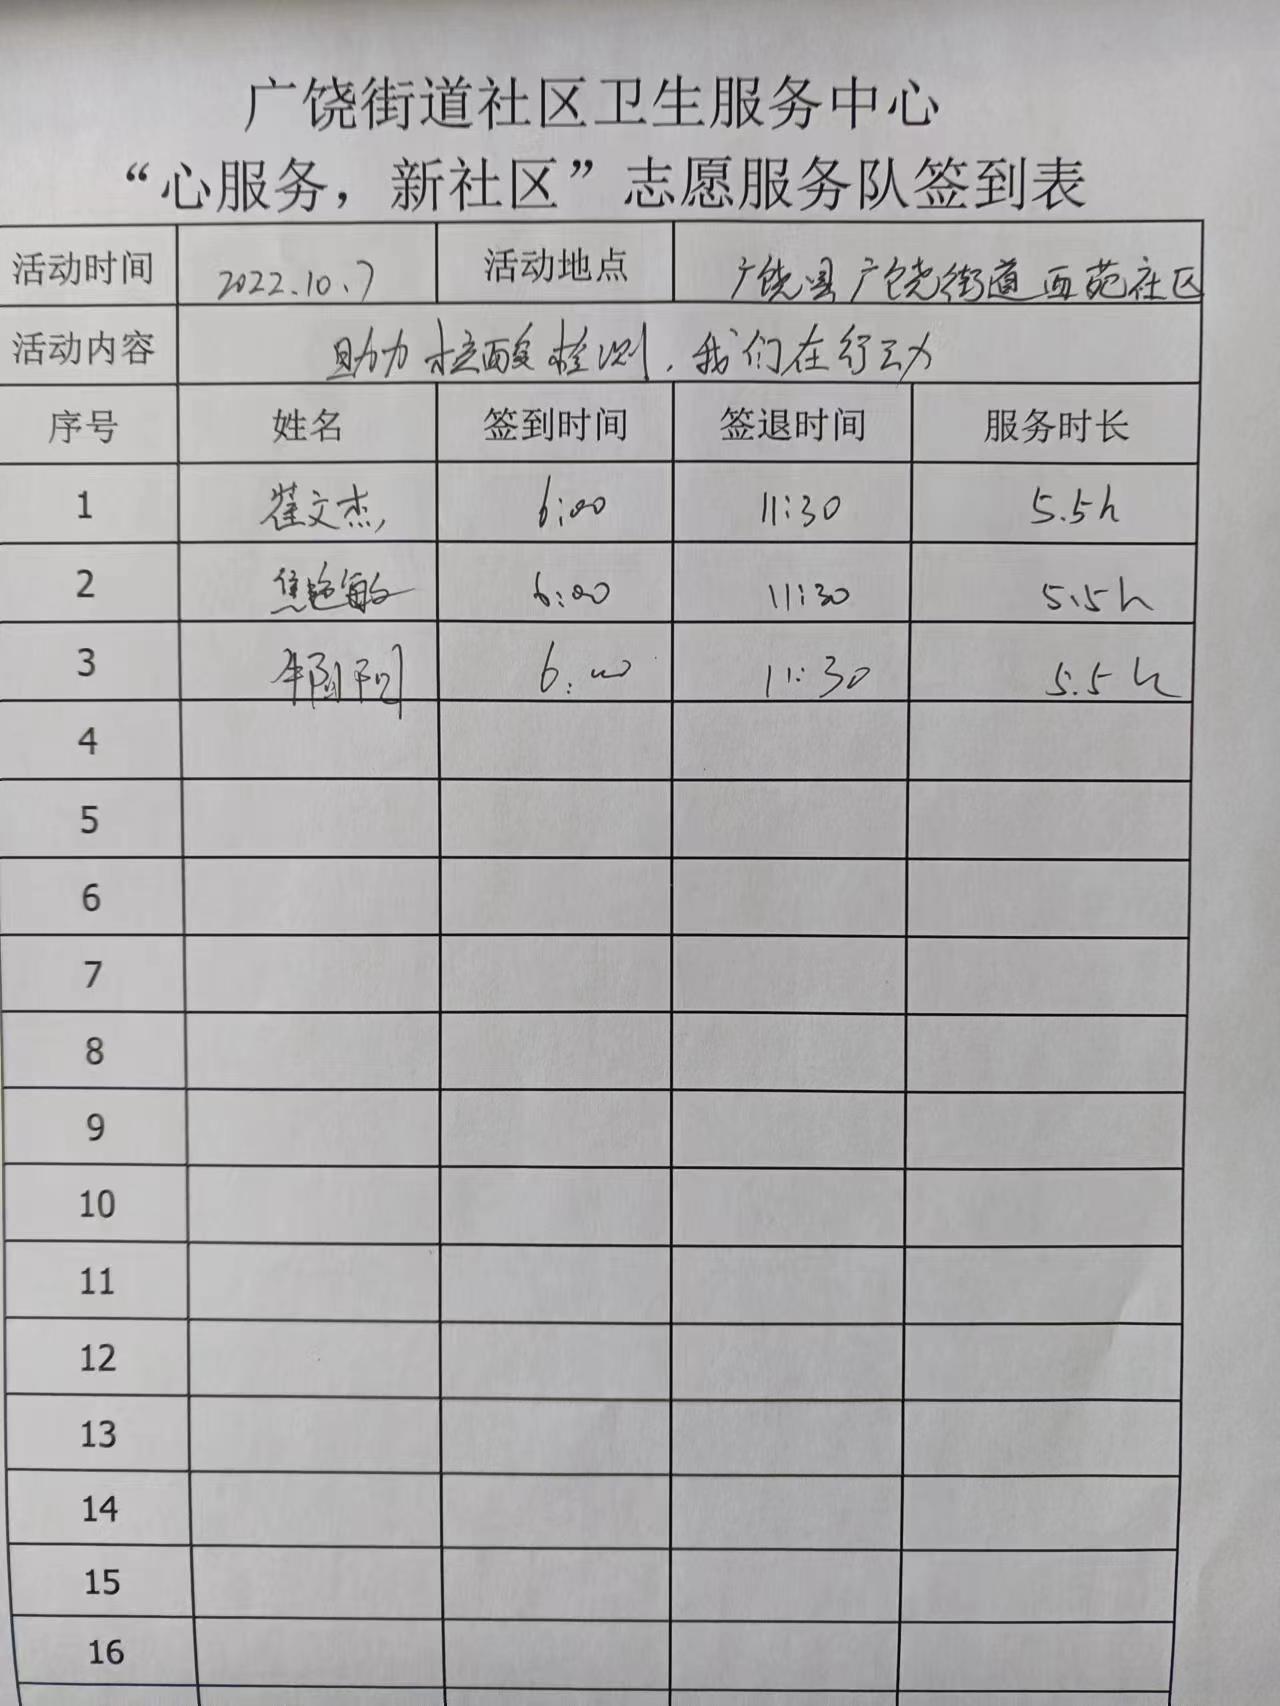 广饶街道社区卫生服务中心
“心服务，新社区”志愿服务队签到表
活动时间 2022.10.7 活动地点 广饶县广饶街道西苑社区
活动内容 助力核酸检测,我们在行动
序号 姓名 签到时间 签退时间 服务时长
1 崔文杰 6:00 11:30 5.5h
2 焦艳敏 6:00 11:30 5.5h
3 6:00 11:30 5.5h
4
5
6
7
8
9
10
11
12
13
14
15
16